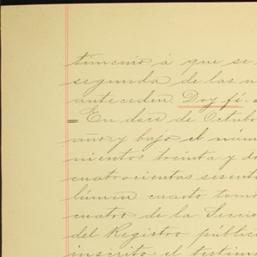 timonio á que se
segunda de las n
anteceden. Doy fé.
En doce de Octub
año y bajo el núm
mientos treinta y d
cuatrocientas sesent
lúmen cuarto tomo
cuatro de la Secci
del Registro públic
inscrito el testim